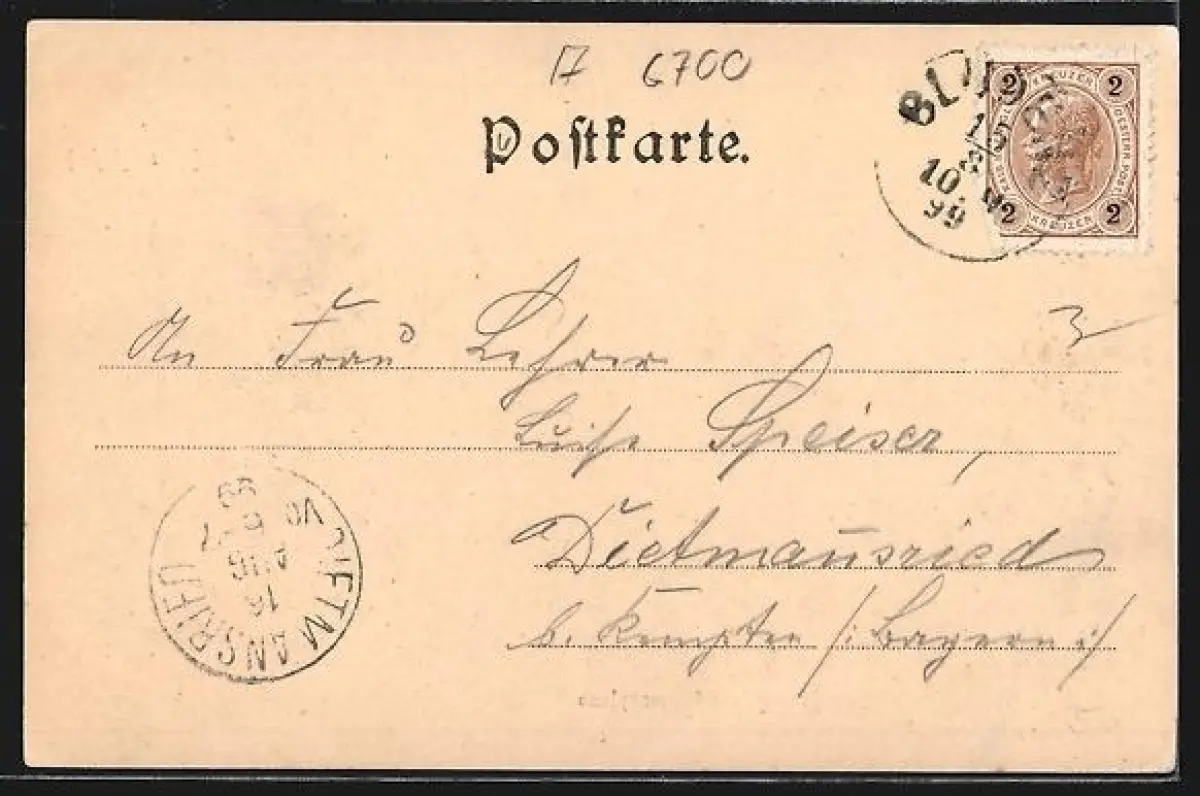 17 6700
Postkarte.
2 KREUZER 2
OESTERR. POST
2 KREUZER 2
BLUD
15
8
10. V
99
3
An Frau Lehrer
Luise Speiser,
Dietmansried
b. Kempten /: Bayern :/
DIETMANSRIED
16
AUG
99